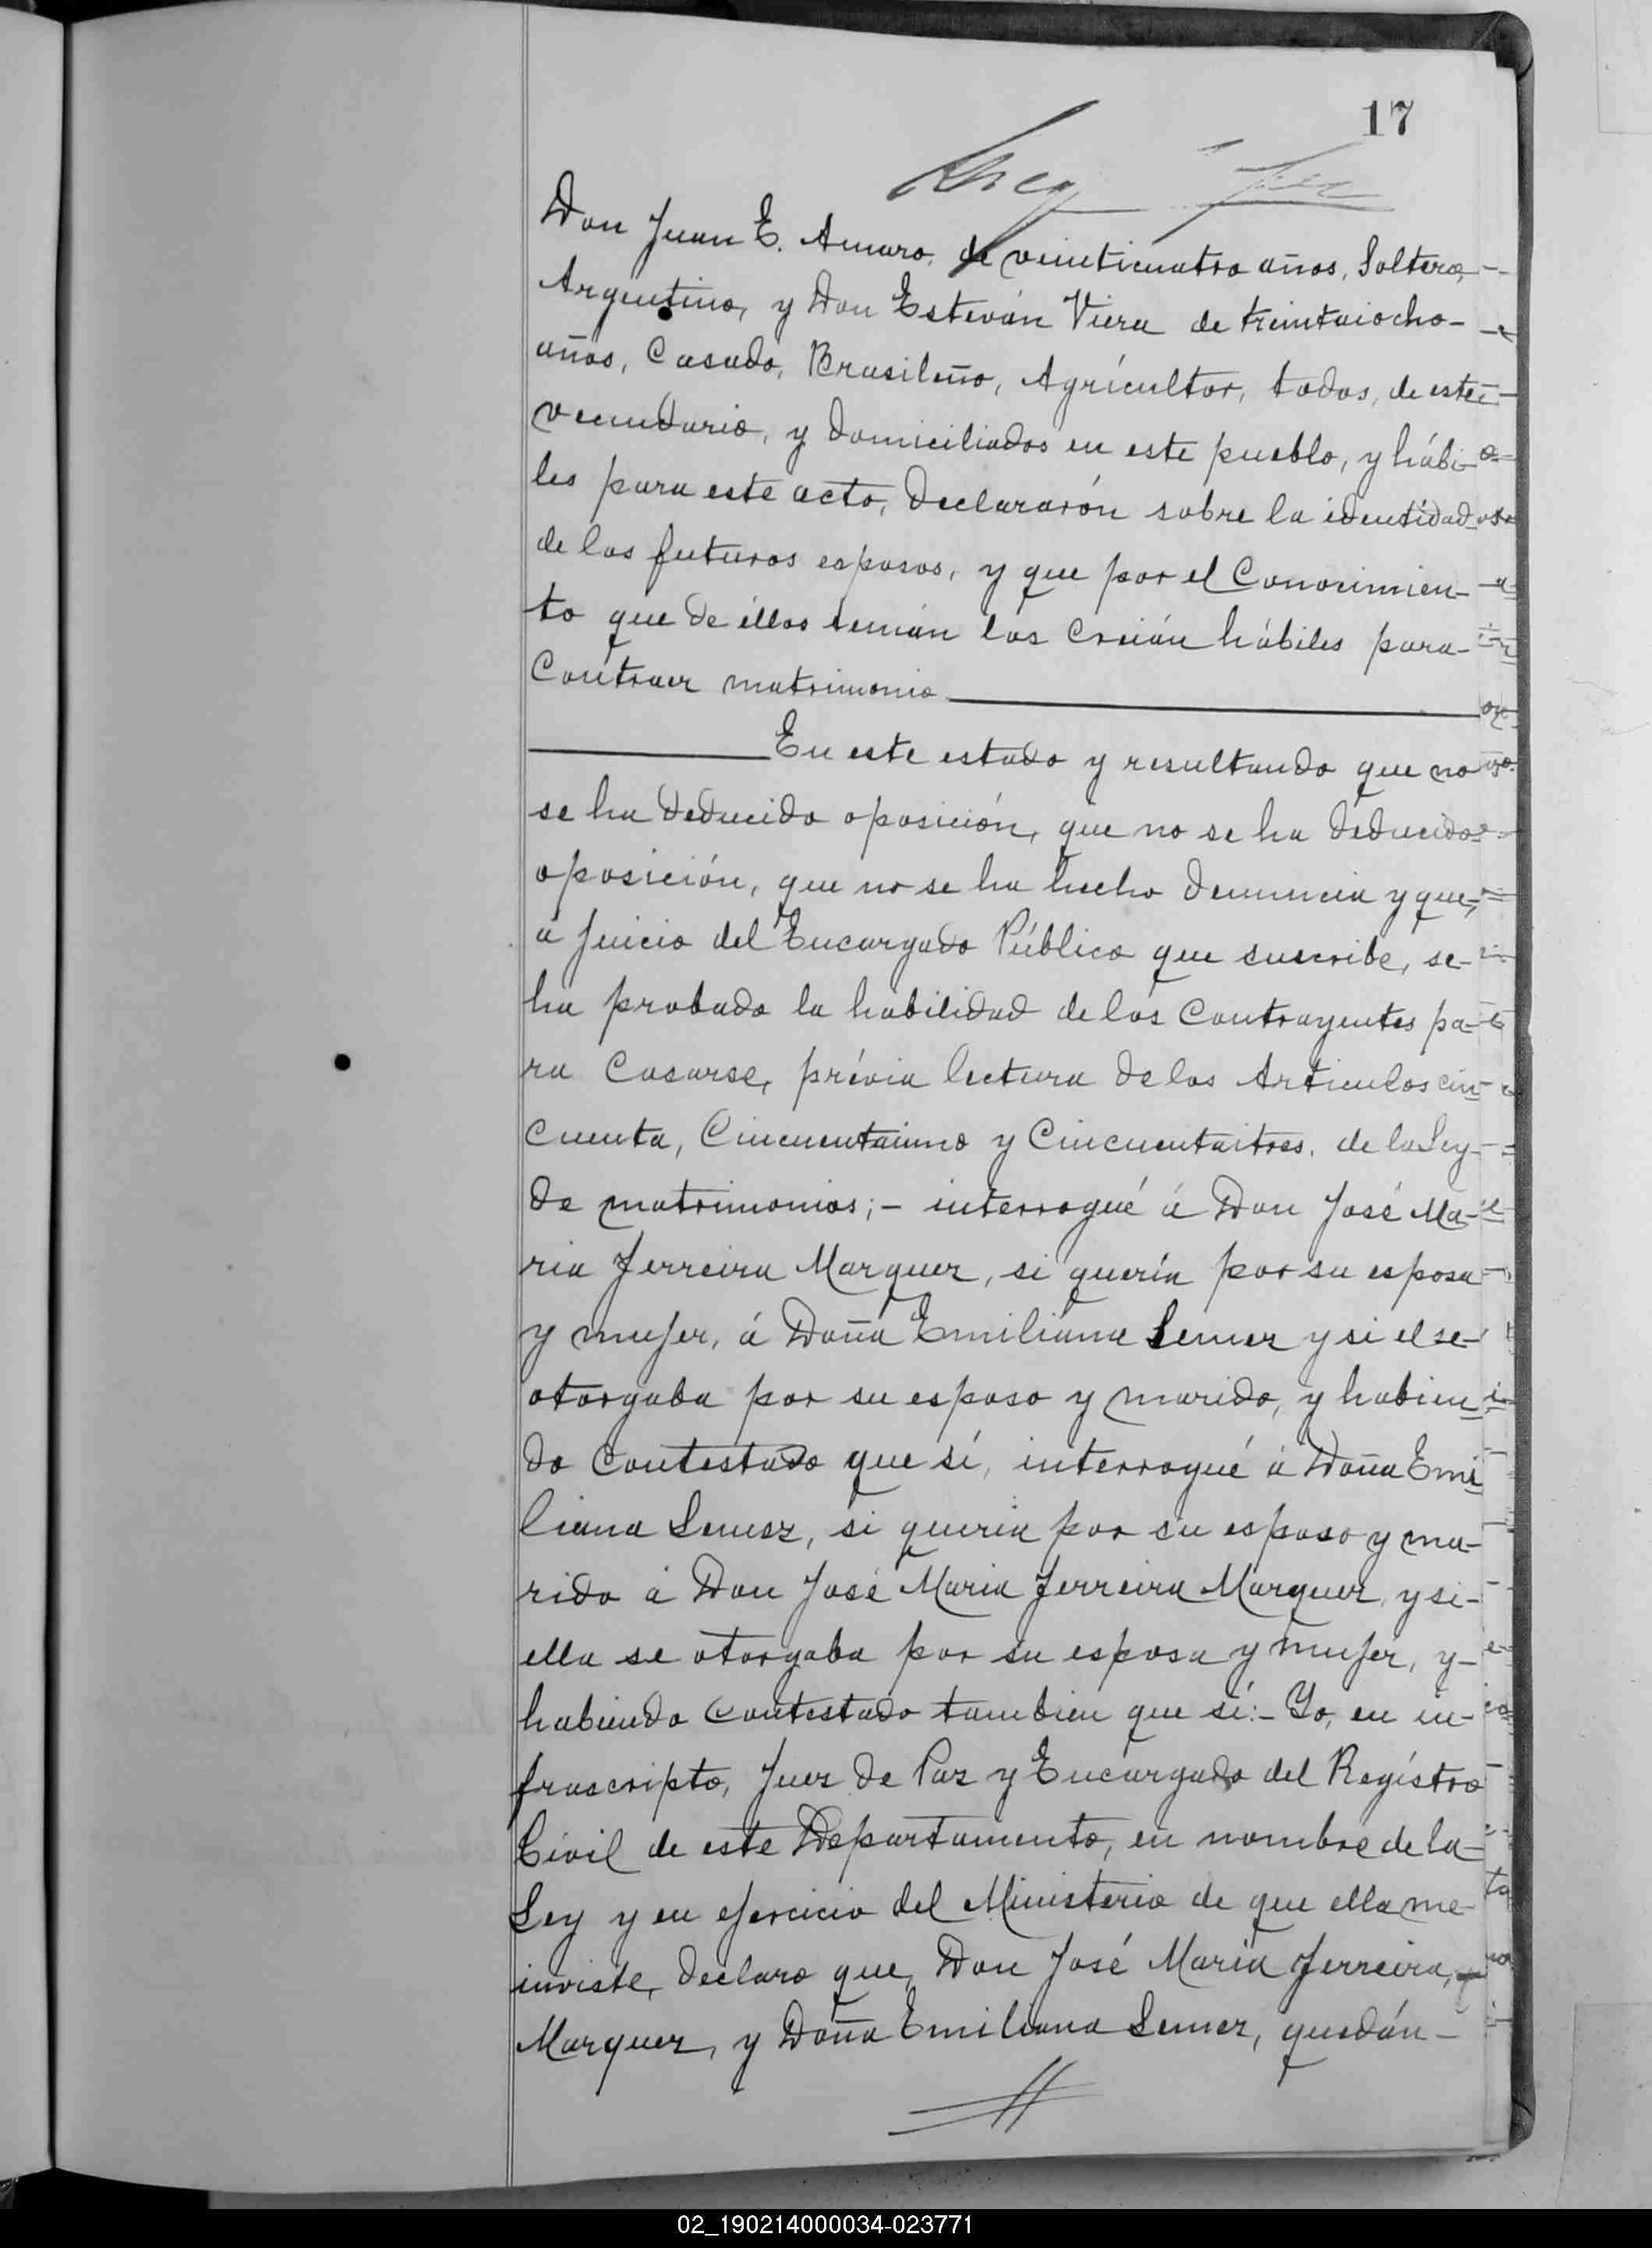 17
Don Juan E. Amaro, de veinticuatro años, Soltero,
Argentino, y Don Esteván Viera de treintaiocho-
años, Casado, Brasileño, Agrícultor, todos, de este-
vecindario, y domiciliados en este pueblo, y hábi-
les para este acto, declararón sobre la identidad
de los futuros esposos, y que por el Conocimien-
to que de éllos tenián los Creián hábiles para-
Contraer matrimonio
En este estado y resultando que no
se ha deducido oposición, que no se ha deducido
oposición, que no se ha hecho denuncia y que,
á juicio del Encargado Público que suscribe, se-
ha probado la habilidad de los Contrayentes pa-
ra Casarse, prévia lectura de los Articulos cin-
cuenta, Cincuentaiuno y Cincuentaitres. de la Ley-
de matrimonios;- interrogué á Don José Ma-
ria Ferreira Marquez, si quería por su esposa
y mujer, á Doña Emiliana Semez y si el se-
otorgaba por su esposo y marido, y habien
do Contestado que sí, interrogué á Doña Emi
liana Semez, si queria por su esposo y ma-
rido á Don José Maria Ferreira Marquez, y si-
ella se otorgaba por su esposa y mujer, y-
habiendo Contestado tambien que sí:- Yo, en in-
frascripto, Juez de Paz y Encargado del Regístro
Civil de este Departamento, en nombre de la-
Ley y en ejercicio del Ministerio de que ella me-
inviste, declaro que, Don José Maria Ferreira,
Marquez, y Doña Emiliana Semez, quedán-
02_190214000034-023771